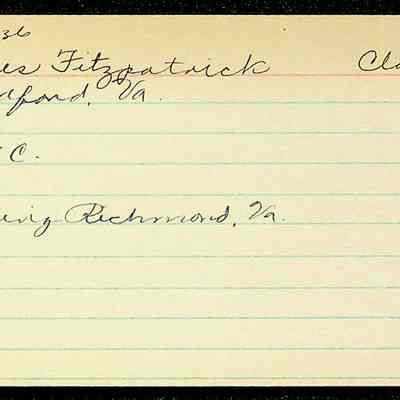 36
es Fitzpatrick Cla
dford, Va.
C.
ing Richmond, Va.